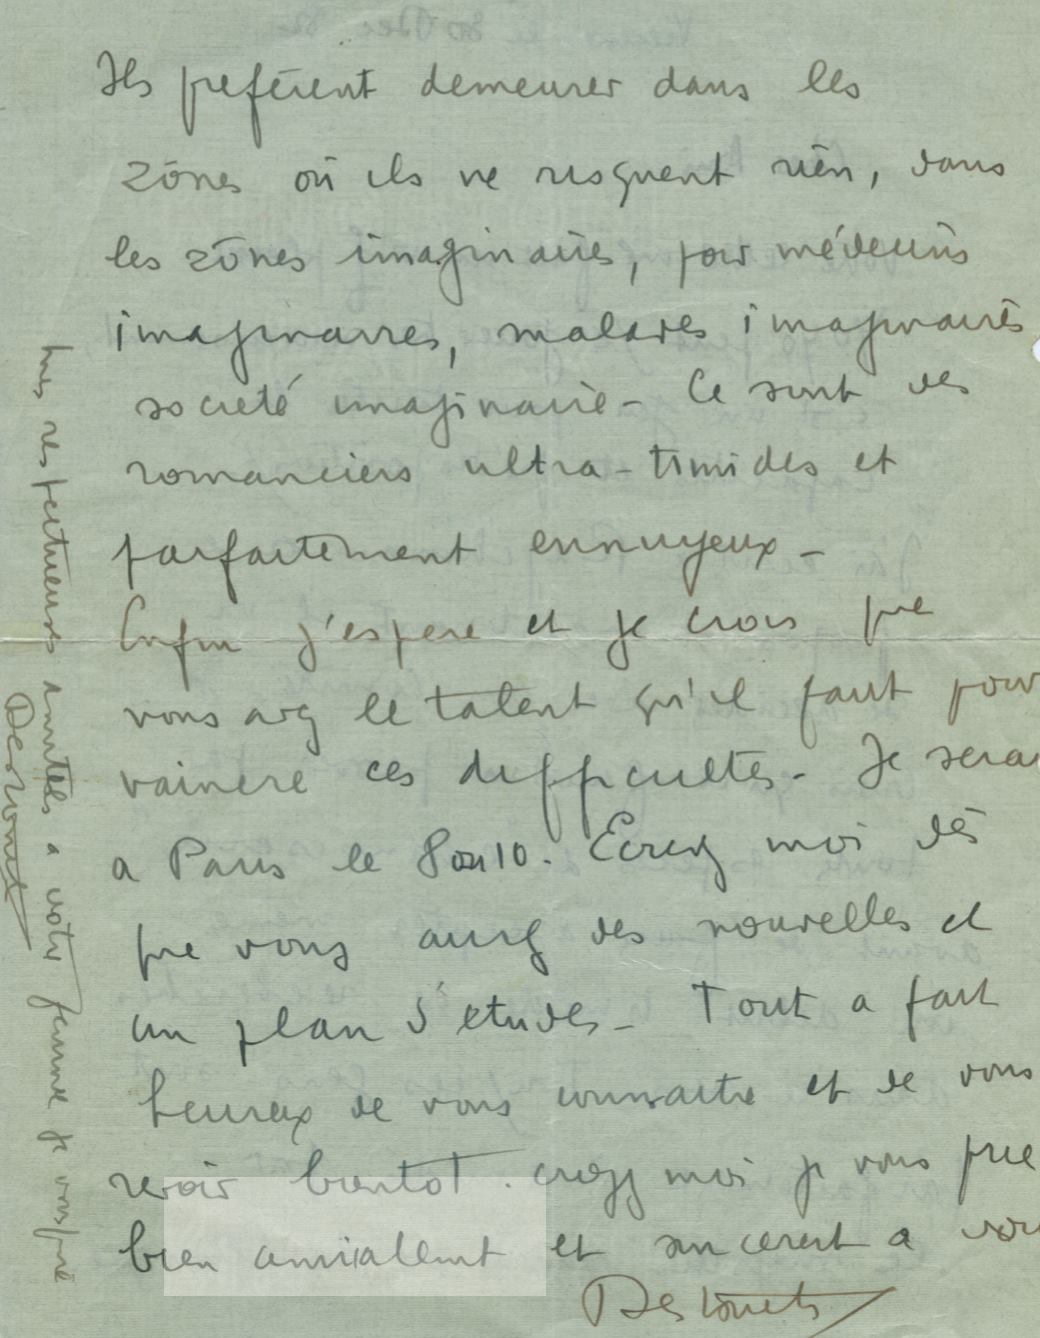 Ils preferent demeurer dans les
zônes où ils ne risquent rien, dans
les zônes imaginaires, pour médecins
imaginaires, malades imaginaires
societé imaginaire - Ce sont des
romanciers ultra-timides et
parfaitement ennuyeux -
Enfin j'espere et je crois que
vous avez le talent qu'il faut pour
vaincre ces difficultes - Je serai
a Paris le 8 ou 10. Ecrivez moi dès
que vous aurez des nouvelles et
un plan d'etudes - Tout a fait
heureux de vous connaitre et de vous
revoir bientot. croyez moi je vous prie
bien amicalement et sincerent a vou
Destouches
mes respectueuses amities a votre femme je vous prie
Destouches